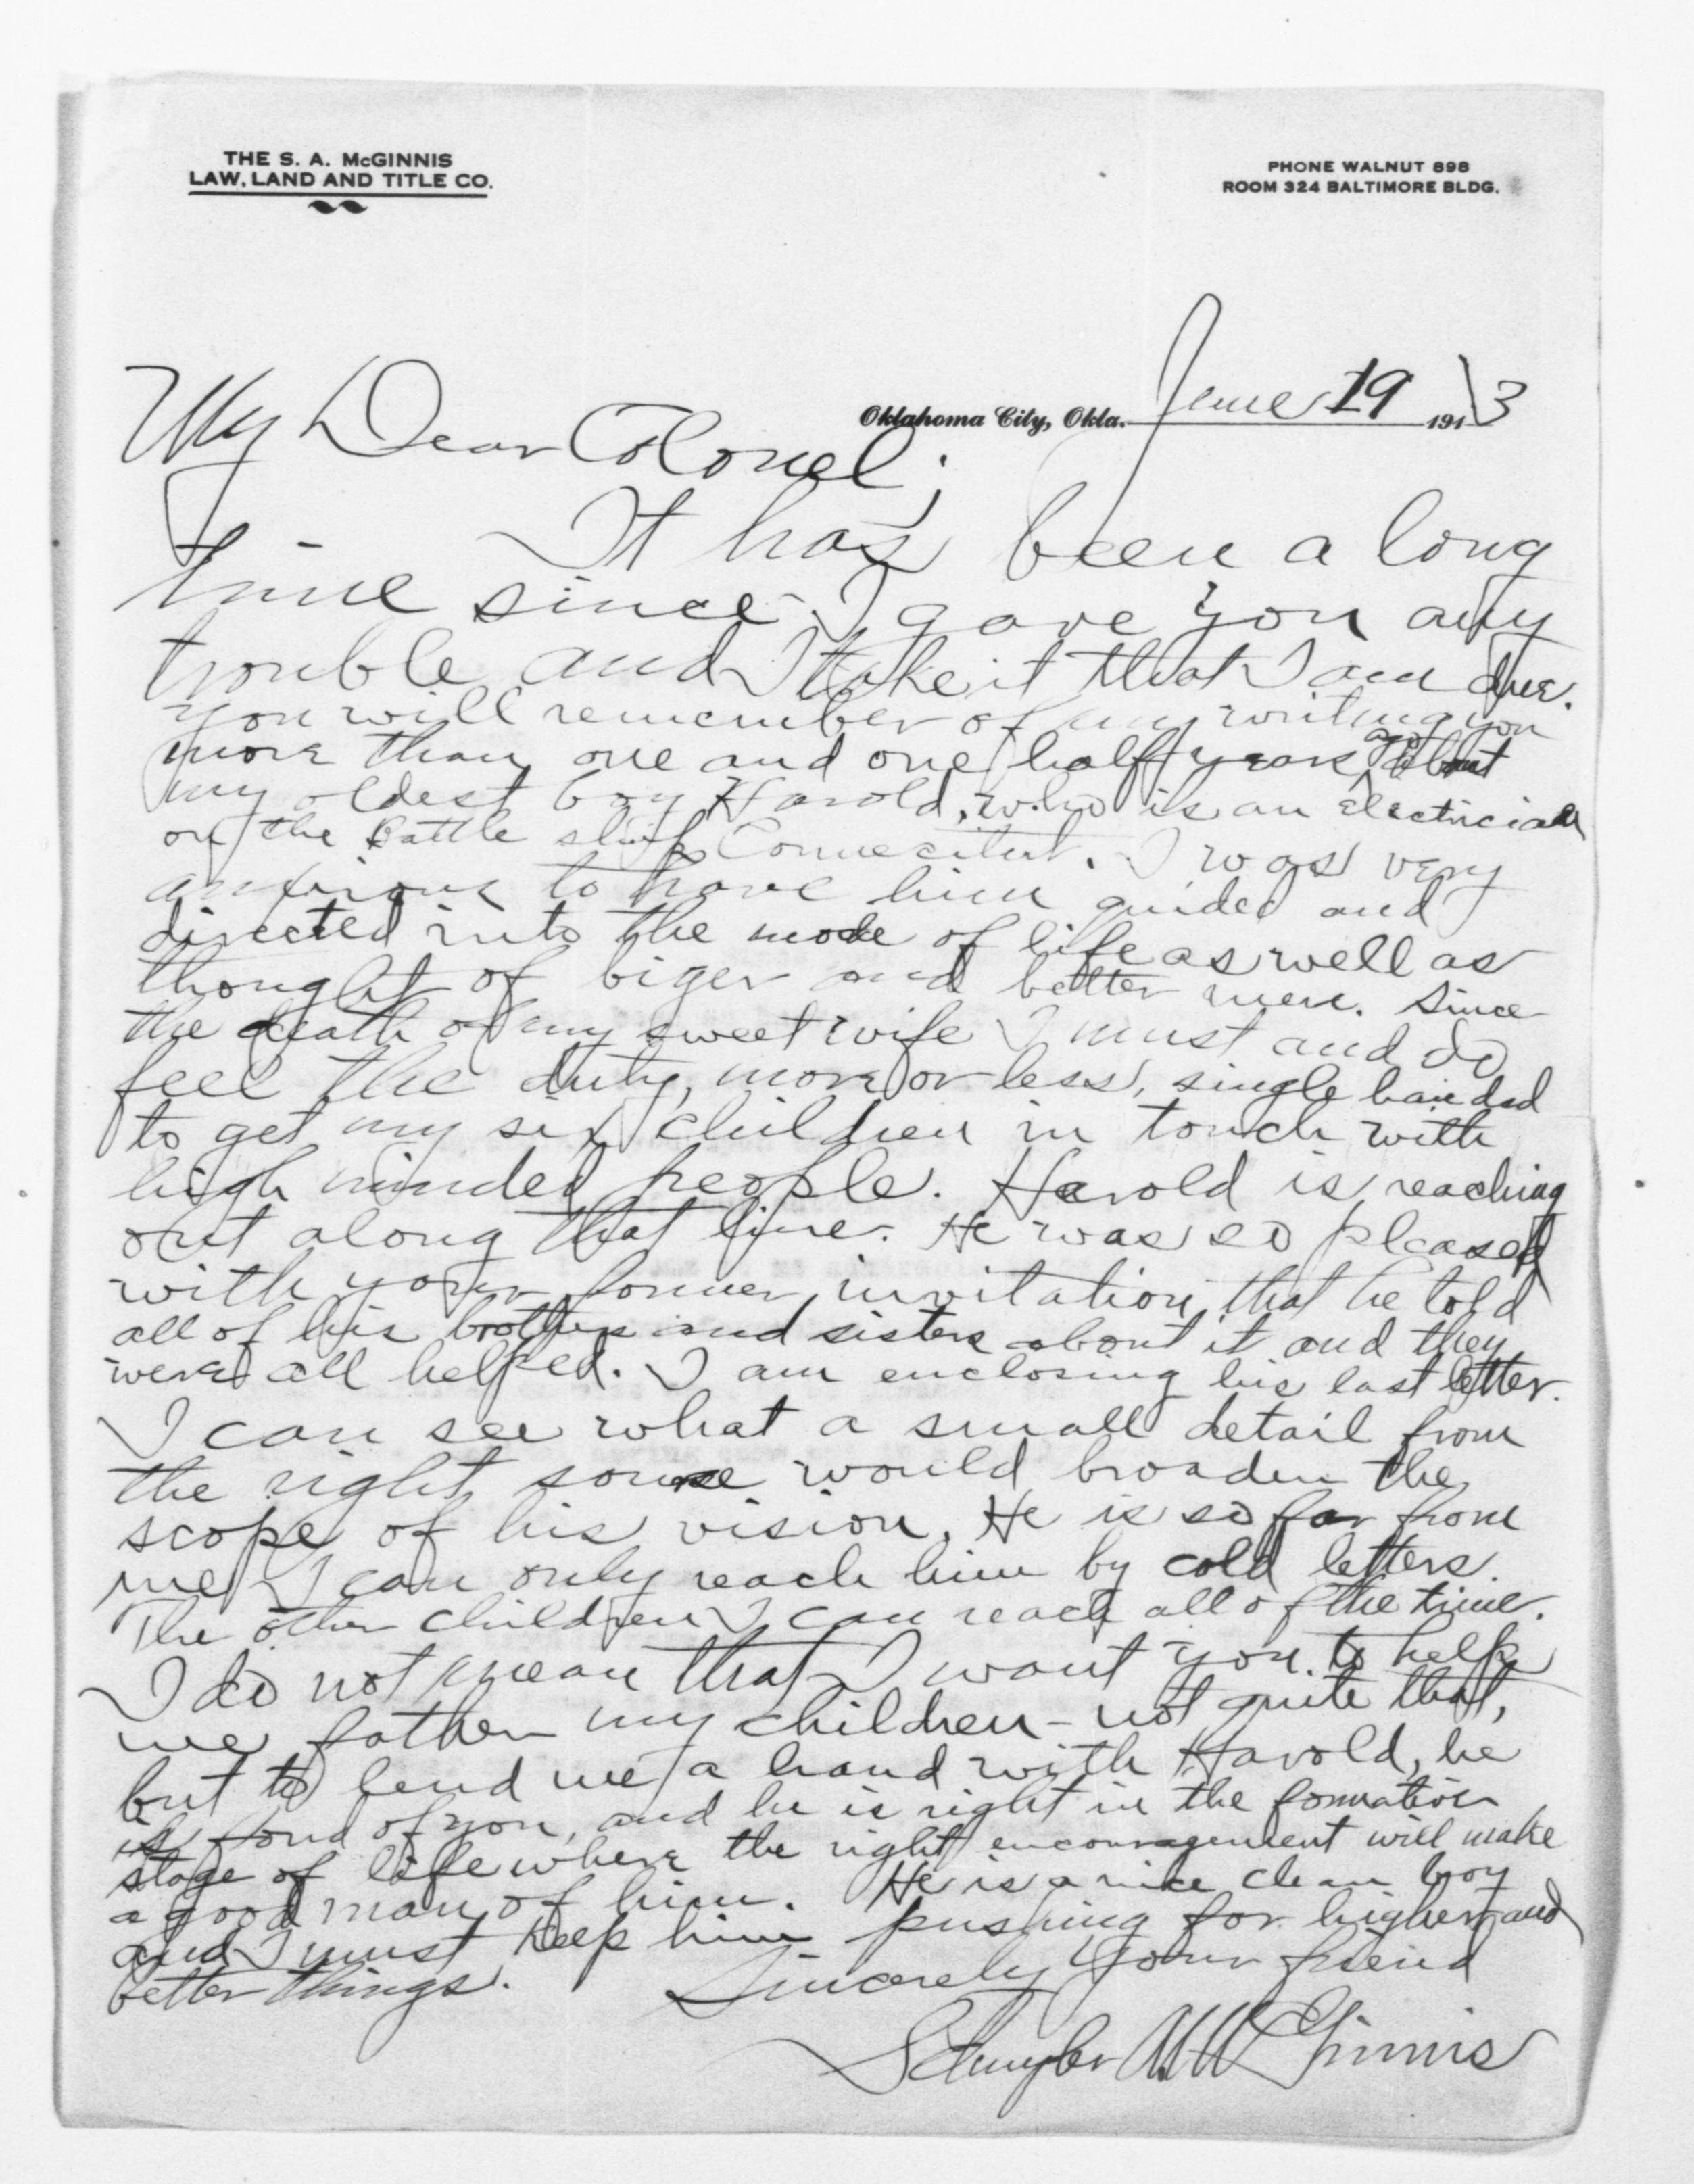 THE S. A. McGINNIS
LAW, LAND AND TITLE CO.
PHONE WALNUT 898
ROOM 324 BALTIMORE BLDG.
Oklahoma City, Okla. June 19 1913
My Dear Colonel;
It has been a long
time since I gave you any
trouble and I take it that I am due.
You will remember of my writing you
more than one and one half years ago about
my oldest boy Harold, who is an electrician
on the battle ship Connecitut. I was very
anxious to have him guided and
directed into the mode of life as well as
thought of biger and better men. Since
the death of my sweet wife I must and do
feel the duty, more or less, single handed
to get my six children in touch with
high minded people. Harold is reaching
out along that line. He was so pleased
with your former invitation that he told
all of his brothers and sisters about it and they
were all helped. I am enclosing his last letter.
I can see what a small detail from
the right sourse would broaden the
scope of his vision. He is so far from
me I can only reach him by cold letters.
The other children I can reach all of the time.
I do not mean that I want you to help
me father my children - not quite that,
but to lend me a hand with Harold, he
is fond of you, and he is right in the formation
stage of life where the right encouragement will make
a good man of him. He is a nice clean boy
and I must keep him pushing for higher and
better things. Sincerely Your friend
Schuyler A McGinnis